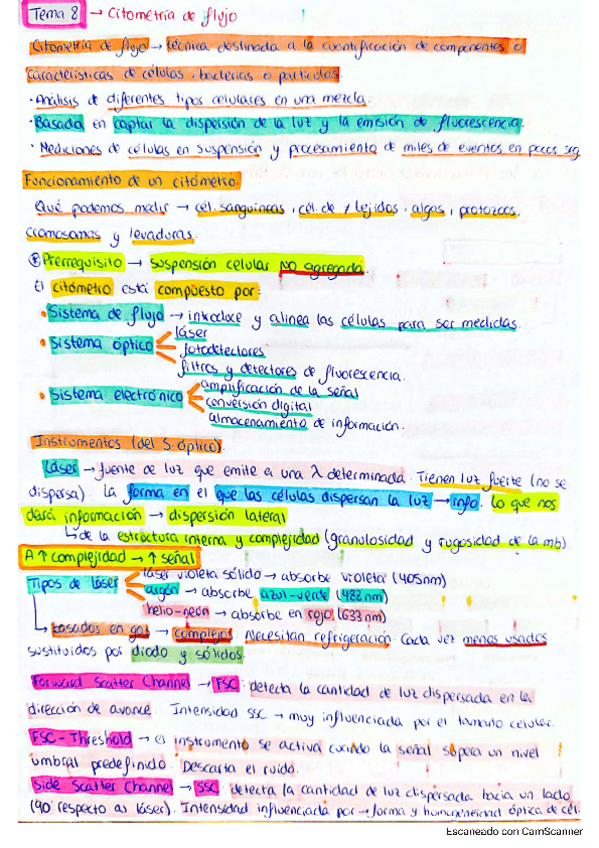 Tema 8 → Citometría de flujo
Citometría de flujo → técnica destinada a la cuantificación de componentes o
características de células, bacterias o partículas.
· Análisis de diferentes tipos celulares en una mezcla.
· Basada en captar la dispersión de la luz y la emisión de fluorescencia.
· Mediciones de células en suspensión y procesamiento de miles de eventos en pocos sg
Funcionamiento de un citómetro.
Qué podemos medir → cél. sanguíneas, cél. de / tejidos, algas, protozoos,
cromosomas y levaduras.
Prerrequisito → suspensión celular NO agregada
El citómetro está compuesto por:
• Sistema de flujo → introduce y alinea las células para ser medidas.
• Sistema óptico
láser
fotodetectores
filtros y detectores de fluorescencia.
• Sistema electrónico
amplificación de la señal
conversión digital
almacenamiento de información.
Instrumentos (del S. óptico).
Láser → fuente de luz que emite a una λ determinada. Tienen luz fuerte (no se
dispersa). La forma en el que las células dispersan la luz → info. Lo que nos
dará información → dispersión lateral
↳ de la estructura interna y complejidad (granulosidad y rugosidad de la mb).
A ↑ complejidad → ↑ señal
Tipos de láser
láser violeta sólido → absorbe violeta (405nm)
argón → absorbe azul-verde (488 nm)
helio-neón → absorbe en rojo (633 nm)
↳ basados en gas → complejos. Necesitan refrigeración. Cada vez menos usados
sustituidos por diodo y sólidos.
Forward Scatter Channel → FSC: detecta la cantidad de luz dispersada en la
dirección de avance. Intensidad SSC → muy influenciada por el tamaño celular.
FSC - Threshold → el instrumento se activa cuando la señal supera un nivel
umbral predefinido. Descarta el ruido.
Side Scatter Channel → SSC: detecta la cantidad de luz dispersada hacia un lado
(90° respecto al láser). Intensidad influenciada por → forma y homogeneidad óptica de cél.
Escaneado con CamScanner